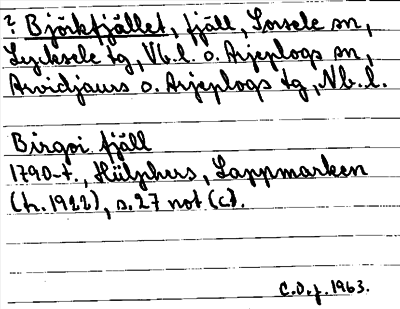 ? Björkfjället, fjäll, Sorsele sn,
Lycksele tg, Vb.l. o. Arjeplogs sn,
Arvidjaurs o. Arjeplogs tg, Nb.l.
Birgoi fjäll
1790-t., Hülphers, Lappmarken
(tr. 1922), s. 27 not (c).
C.O.j. 1963.